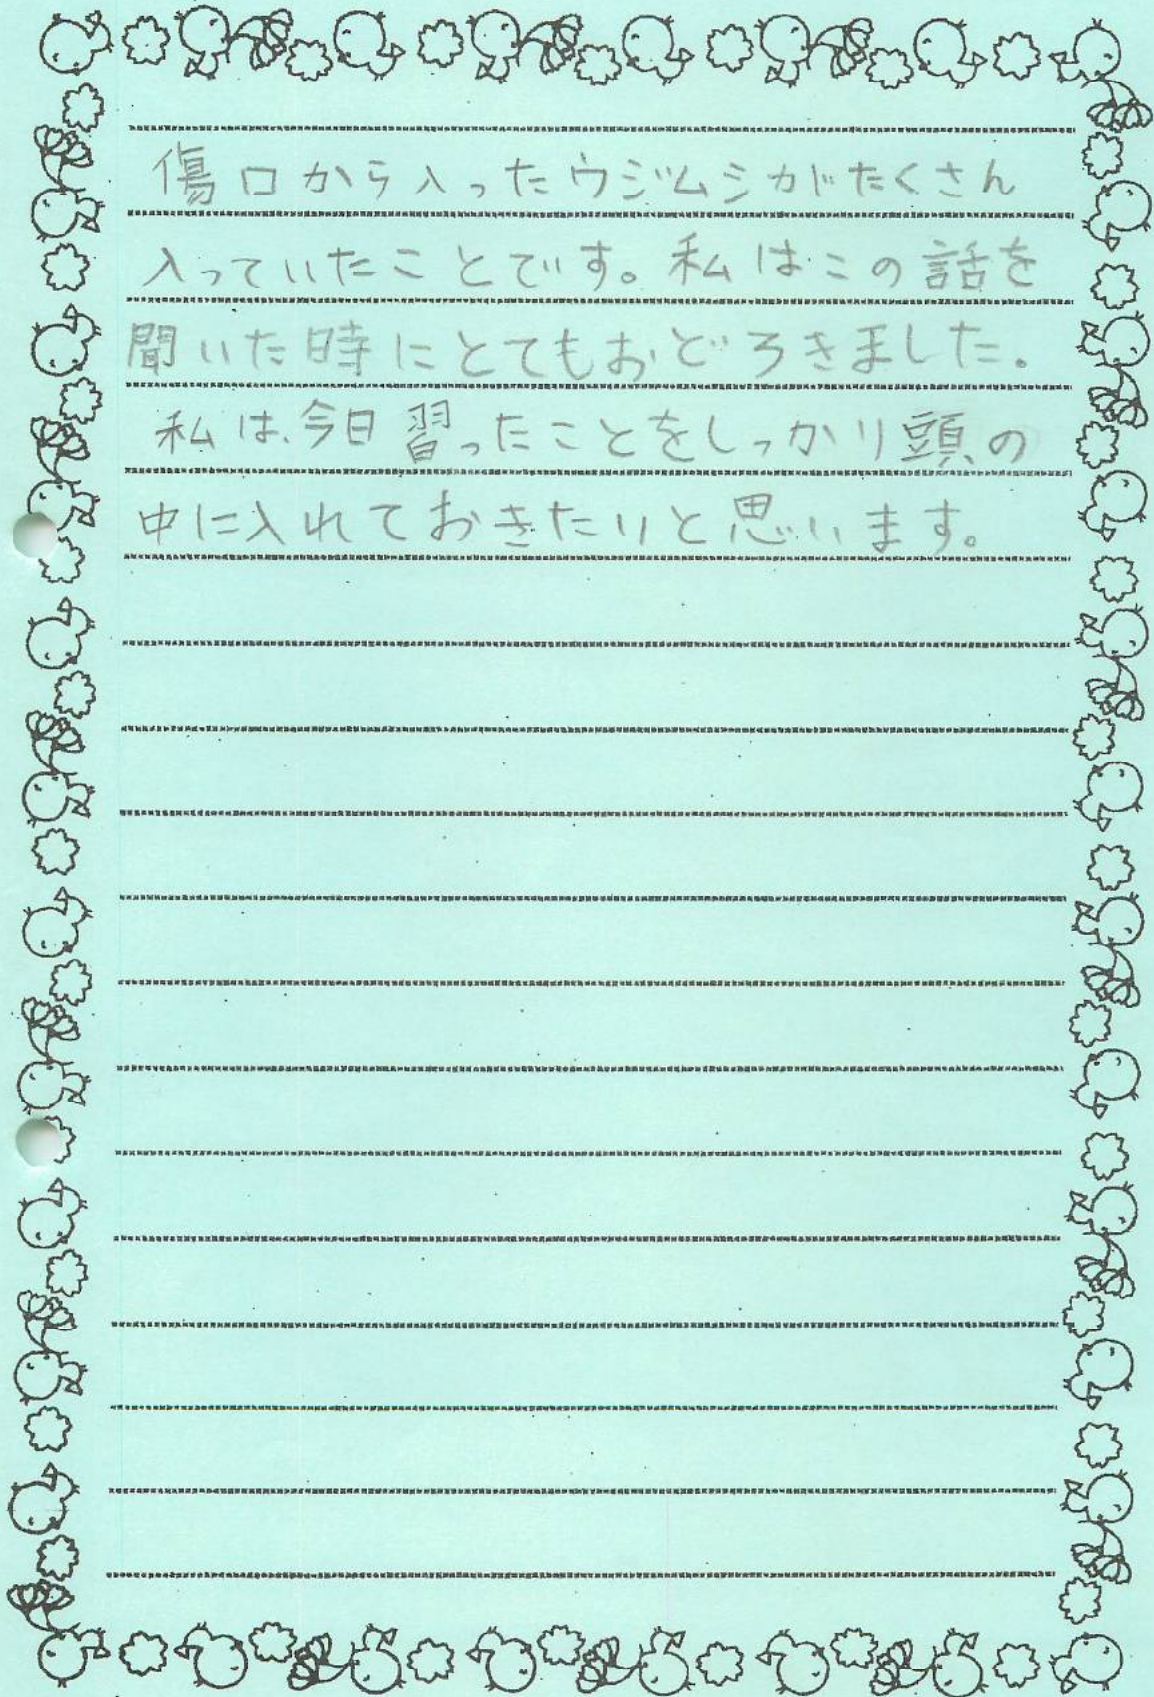 傷口から入ったウジムシがたくさん
入っていたことです。私はこの話を
聞いた時にとてもおどろきました。
私は、今日習ったことをしっかり頭の
中に入れておきたいと思います。